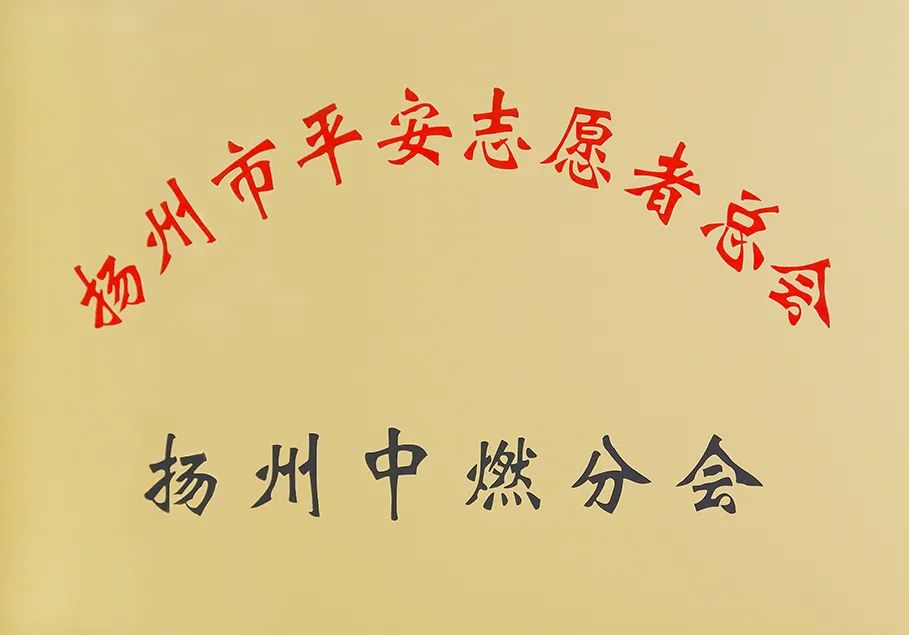 扬州市平安志愿者总会
扬州中燃分会